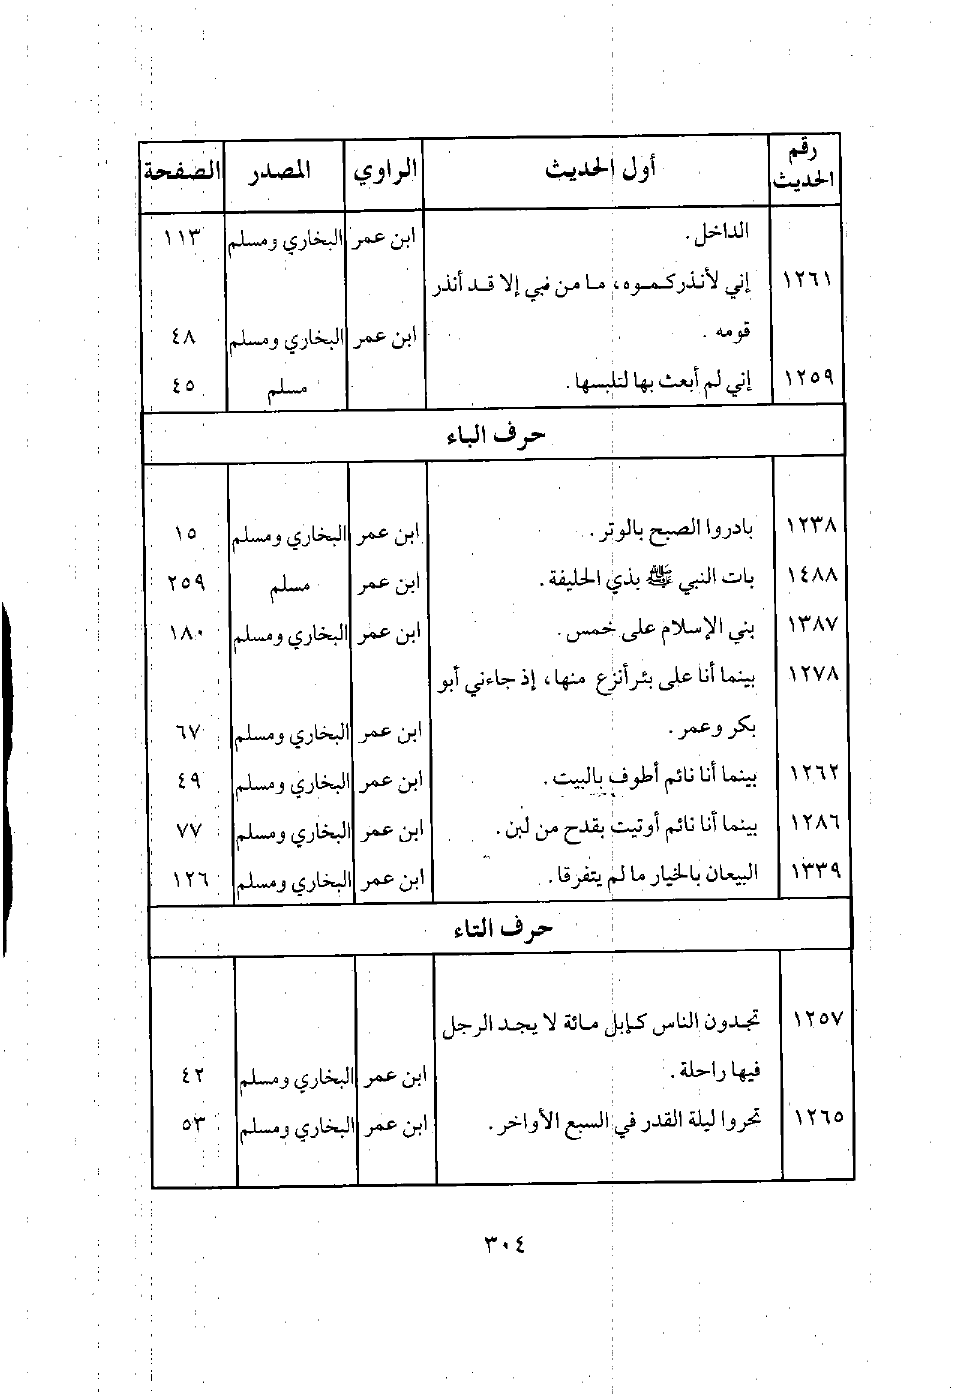 رقم الحديث أول الحديث الراوي المصدر الصفحة
الداخل. ابن عمر البخاري ومسلم ١١٣
١٢٦١ إني لأنذركموه، ما من نبي إلا قد أنذر
قومه. ابن عمر البخاري ومسلم ٤٨
١٢٥٩ إني لم أبعث بها لتلبسها. مسلم ٤٥
حرف الباء
١٢٣٨ بادروا الصبح بالوتر. ابن عمر البخاري ومسلم ١٥
١٤٨٨ بات النبي ﷺ بذي الحليفة. ابن عمر مسلم ٢٥٩
١٣٨٧ بني الإسلام على خمس. ابن عمر البخاري ومسلم ١٨٠
١٢٧٨ بينما أنا على بئر أنزع منها، إذ جاءني أبو
بكر وعمر. ابن عمر البخاري ومسلم ٦٧
١٢٦٢ بينما أنا نائم أطوف بالبيت. ابن عمر البخاري ومسلم ٤٩
١٢٨٦ بينما أنا نائم أوتيت بقدح من لبن. ابن عمر البخاري ومسلم ٧٧
١٣٣٩ البيعان بالخيار ما لم يتفرقا. ابن عمر البخاري ومسلم ١٢٦
حرف التاء
١٢٥٧ تجدون الناس كإبل مائة لا يجد الرجل
فيها راحلة. ابن عمر البخاري ومسلم ٤٢
١٢٦٥ تحروا ليلة القدر في السبع الأواخر. ابن عمر البخاري ومسلم ٥٣
٣٠٤